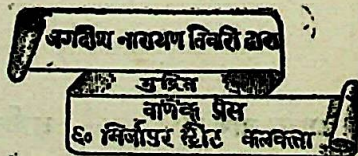 जगदीश नारायण तिवारी द्वारा
मुद्रित
वणिक् प्रेस
६० मिर्जापुर स्ट्रीट कलकत्ता